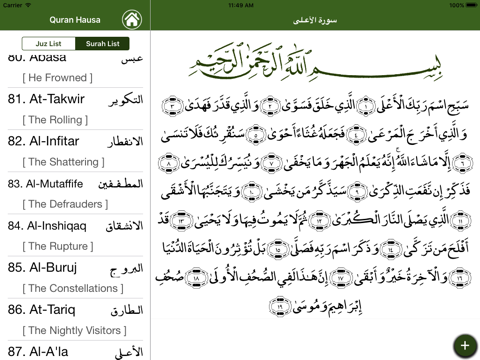 Carrier
11:49 AM
100%
Quran Hausa
سورة الأعلى
Juz List
Surah List
80. Abasa عبس
[ He Frowned ]
81. At-Takwir التكوير
[ The Rolling ]
82. Al-Infitar الانفطار
[ The Shattering ]
83. Al-Mutaffife المطففين
[ The Defrauders ]
84. Al-Inshiqaq الانشقاق
[ The Rupture ]
85. Al-Buruj البروج
[ The Constellations ]
86. At-Tariq الطارق
[ The Nightly Visitors ]
87. Al-A'la الأعلى
بِسْمِ اللَّهِ الرَّحْمَٰنِ الرَّحِيمِ
سَبِّحِ اسْمَ رَبِّكَ الْأَعْلَى ﴿١﴾ الَّذِي خَلَقَ فَسَوَّىٰ ﴿٢﴾ وَالَّذِي قَدَّرَ فَهَدَىٰ ﴿٣﴾
وَالَّذِي أَخْرَجَ الْمَرْعَىٰ ﴿٤﴾ فَجَعَلَهُ غُثَاءً أَحْوَىٰ ﴿٥﴾ سَنُقْرِئُكَ فَلَا تَنسَىٰ
﴿٦﴾ إِلَّا مَا شَاءَ اللَّهُ ۚ إِنَّهُ يَعْلَمُ الْجَهْرَ وَمَا يَخْفَىٰ ﴿٧﴾ وَنُيَسِّرُكَ لِلْيُسْرَىٰ ﴿٨﴾
فَذَكِّرْ إِن نَّفَعَتِ الذِّكْرَىٰ ﴿٩﴾ سَيَذَّكَّرُ مَن يَخْشَىٰ ﴿١٠﴾ وَيَتَجَنَّبُهَا الْأَشْقَى
﴿١١﴾ الَّذِي يَصْلَى النَّارَ الْكُبْرَىٰ ﴿١٢﴾ ثُمَّ لَا يَمُوتُ فِيهَا وَلَا يَحْيَىٰ ﴿١٣﴾ قَدْ
أَفْلَحَ مَن تَزَكَّىٰ ﴿١٤﴾ وَذَكَرَ اسْمَ رَبِّهِ فَصَلَّىٰ ﴿١٥﴾ بَلْ تُؤْثِرُونَ الْحَيَاةَ الدُّنْيَا
﴿١٦﴾ وَالْآخِرَةُ خَيْرٌ وَأَبْقَىٰ ﴿١٧﴾ إِنَّ هَٰذَا لَفِي الصُّحُفِ الْأُولَىٰ ﴿١٨﴾ صُحُفِ
إِبْرَاهِيمَ وَمُوسَىٰ ﴿١٩﴾